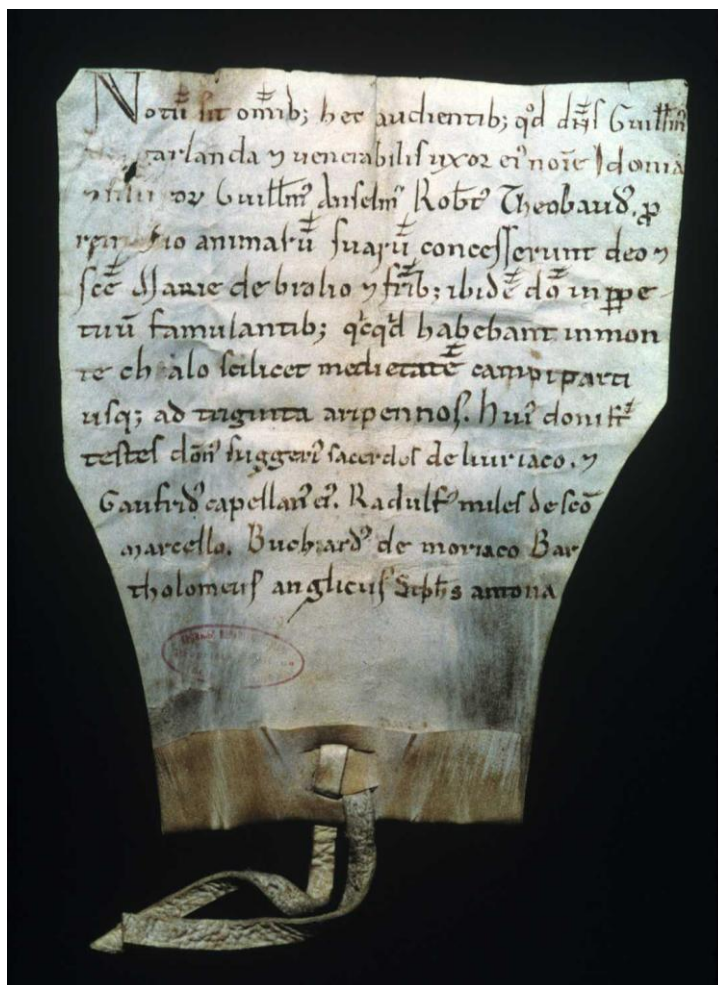 Notū sit om̄ib; hec audientib; qd̊ dn̄s Guill̄mꝰ
garlanda ⁊ uenerabilis uxor eiꝰ noīe Idonia
Guill̄mꝰ Anselmꝰ Rob̄tꝰ Theobaudꝰ. ꝓ
animarū suarū concesserunt deo ⁊
scē Marie de brolio ⁊ fr̄ib; ibidē dō in ꝑpe
tuū famulantib; qͥcqͥd habebant in mon
te ch alo scilicet medietatē campiparti
usq; ad triginta aripennos. Huiꝰ doni st̄
testes dōnꝰ suggeriꝰ sacerdos de liuriaco. ⁊
Gaufridꝰ capellanꝰ eiꝰ. Radulfꝰ miles de scō
marcello. Buchardꝰ de moriaco Bar
tholomeus anglicus Steph̄s antona